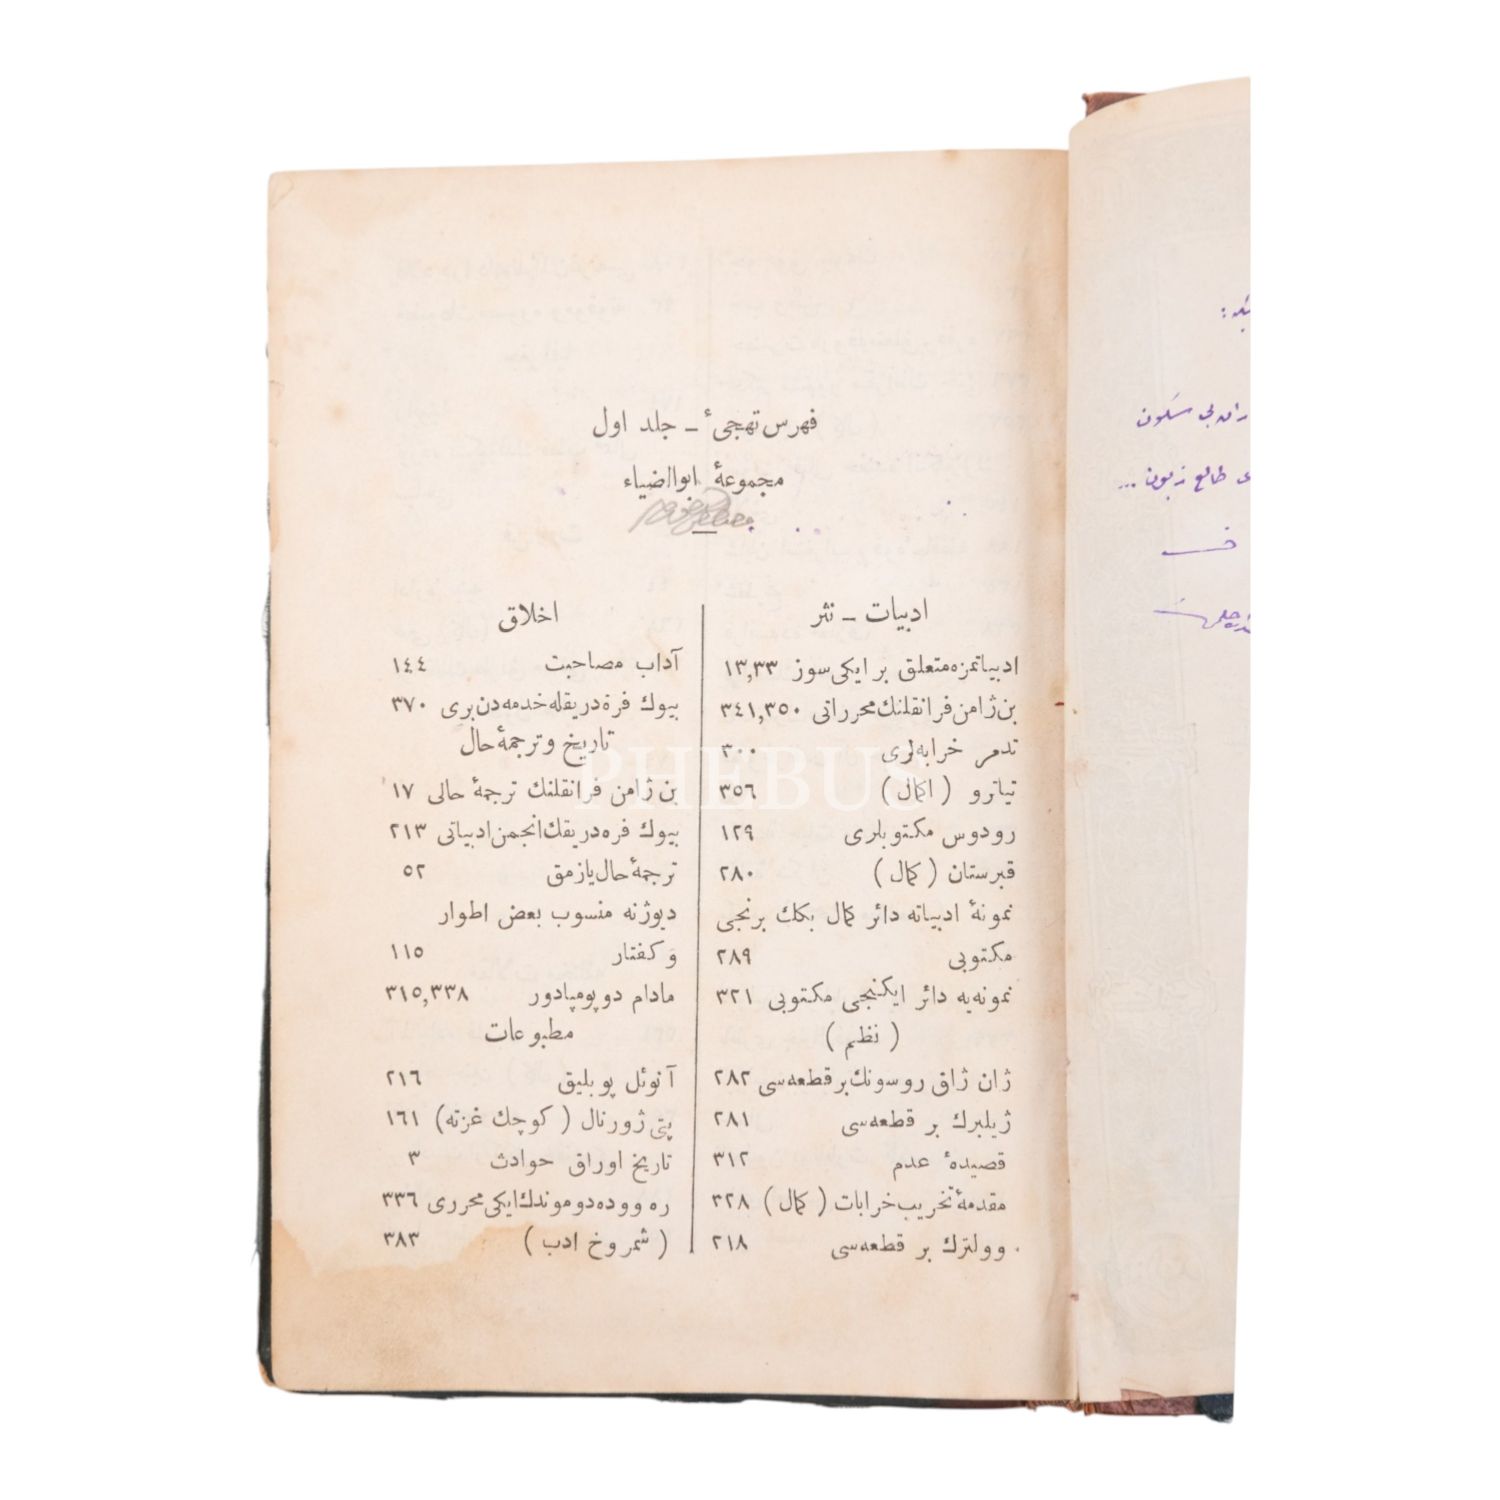 فهرس تهجیٔ ـ جلد اول
مجموعۀ ابوالضیاء
ادبیات ـ نثر
ادبیاتمزه متعلق بر ایکی سوز ١٣,٣٣
بن ژامن فرانقلنك محرراتی ٣٤١,٣٥٠
تدمر خرابه‌لری ٣٠٠
تیاترو ( اکمال ) ٣٥٦
رودوس مکتوبلری ١٢٩
قبرستان ( کمال ) ٢٨٠
نمونۀ ادبیاته دائر کمال بكك برنجی
مکتوبی ٢٨٩
نمونه‌یه دائر ایکنجی مکتوبی ٣٢١
( نظم )
ژان ژاق روسونك بر قطعه‌سی ٢٨٢
ژیلبرك بر قطعه‌سی ٢٨١
قصیدۀ عدم ٣١٢
مقدمۀ تخریب خرابات ( کمال ) ٣٢٨
وولترك بر قطعه‌سی ٢١٨
اخلاق
آداب مصاحبت ١٤٤
بیوك فره‌دریقله خدمه‌دن بری ٣٧٠
تاریخ و ترجمۀ حال
بن ژامن فرانقلنك ترجمۀ حالی ١٧
بیوك فره‌دریقك انجمن ادبیاتی ٢١٣
ترجمۀ حال یازمق ٥٢
دیوژنه منسوب بعض اطوار
و کفتار ١١٥
مادام دو پومپادور ٣١٥,٣٣٨
مطبوعات
آنوئل پوبلیق ٢١٦
پتی ژورنال ( کوچك غزته ) ١٦١
تاریخ اوراق حوادث ٣
ره وو ده دو موندك ایکی محرری ٣٣٦
( شمروخ ادب ) ٣٨٣
طالع زبون ...
PHEBUS